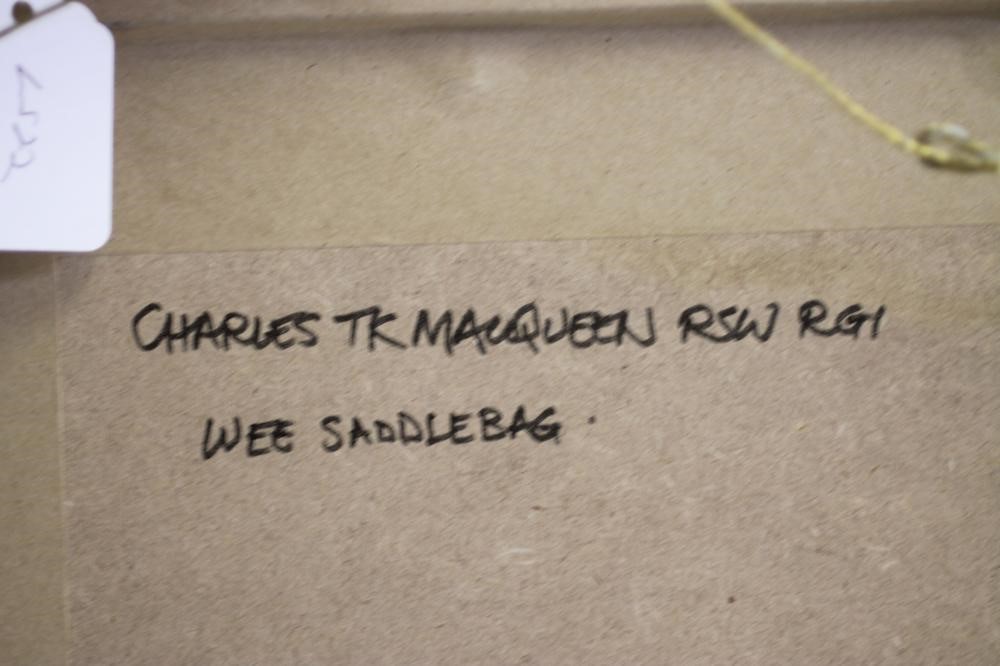 CHARLES TK MACQUEEN RSW RGI
WEE SADDLEBAG .